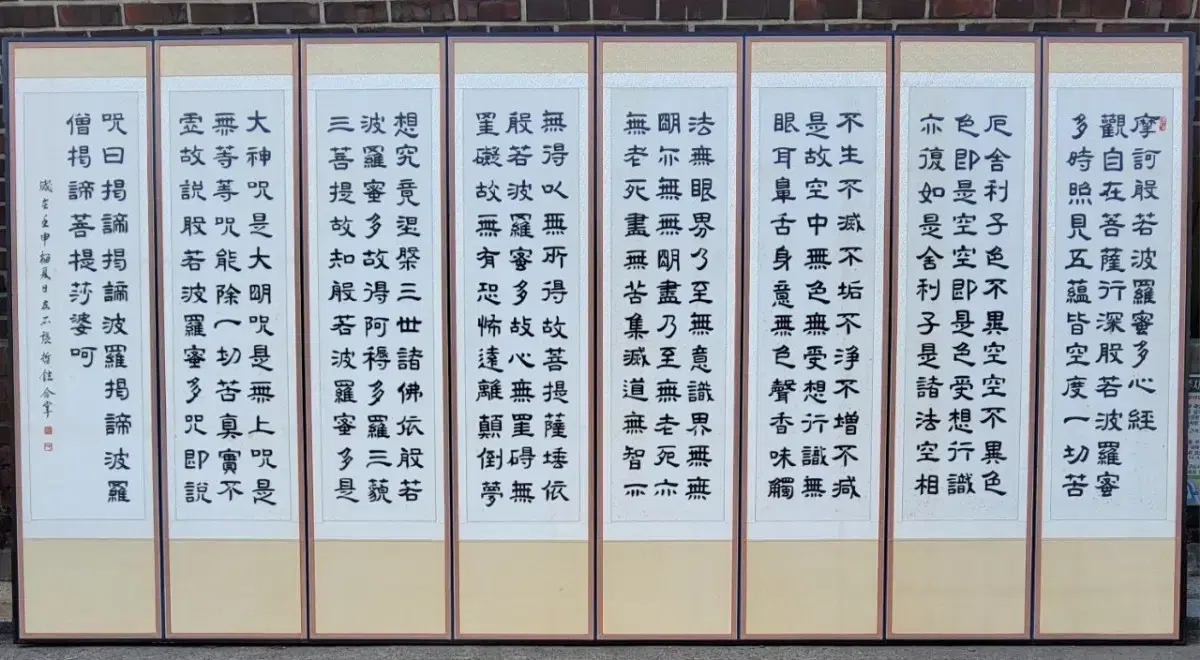 摩訶般若波羅蜜多心經
觀自在菩薩行深般若波羅蜜
多時照見五蘊皆空度一切苦
厄舍利子色不異空空不異色
色即是空空即是色受想行識
亦復如是舍利子是諸法空相
不生不滅不垢不淨不增不減
是故空中無色無受想行識無
眼耳鼻舌身意無色聲香味觸
法無眼界乃至無意識界無無
明亦無無明盡乃至無老死亦
無老死盡無苦集滅道無智亦
無得以無所得故菩提薩埵依
般若波羅蜜多故心無罣碍無
罣礙故無有恐怖遠離顛倒夢
想究竟涅槃三世諸佛依般若
波羅蜜多故得阿耨多羅三藐
三菩提故知般若波羅蜜多是
大神咒是大明咒是無上咒是
無等等咒能除一切苦真實不
虛故說般若波羅蜜多咒即說
呪曰揭諦揭諦波羅揭諦波羅
僧揭諦菩提莎婆呵
歲在壬申榴夏日 合掌